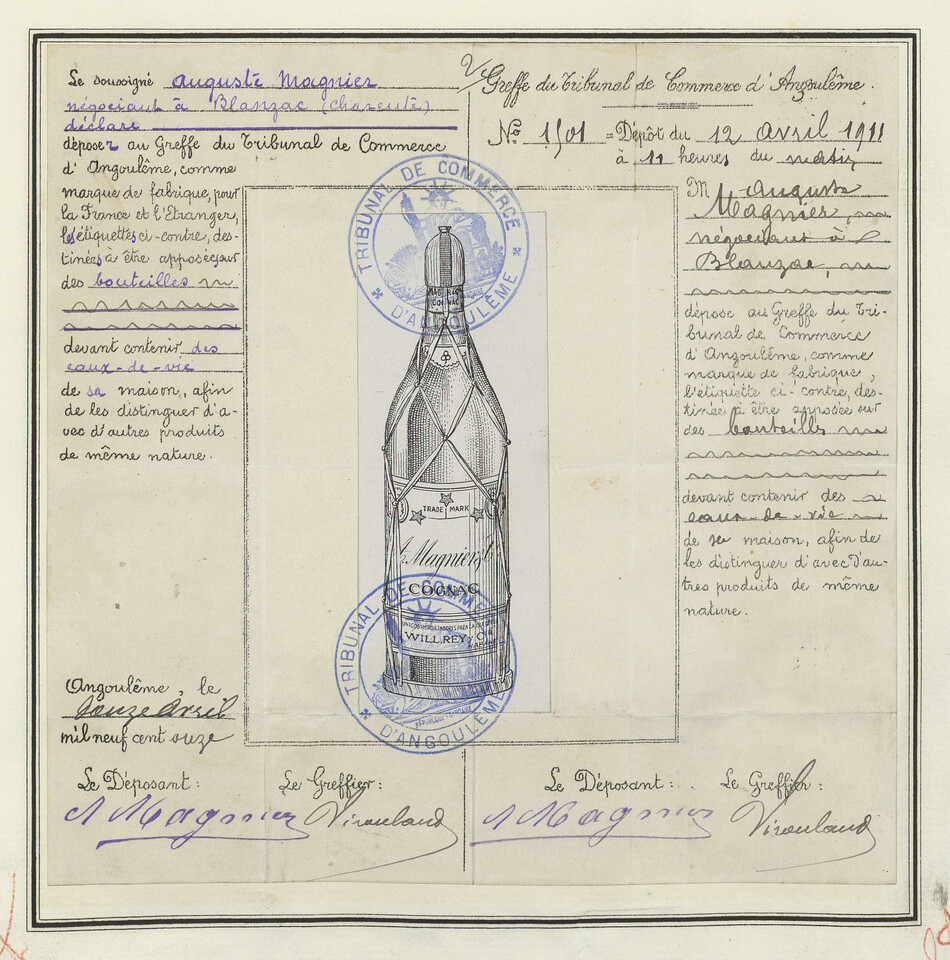 Le soussigné Auguste Magnier
négociant à Blanzac (Charente)
déclare
déposer au Greffe du Tribunal de Commerce
d'Angoulême, comme
marque de fabrique, pour
la France et l'Etranger,
les étiquettes ci-contre, des-
tinées à être apposées sur
des bouteilles
devant contenir des
eaux-de-vie
de sa maison, afin
de les distinguer d'a-
vec d'autres produits
de même nature.
Angoulême, le
douze avril
mil neuf cent onze
Le Déposant : Le Greffier :
A Magnier Virouland
Greffe du Tribunal de Commerce d'Angoulême.
No 1501 = Dépôt du 12 avril 1911
à 11 heures du matin
M Auguste
Magnier,
négociant à
Blanzac,
dépose au Greffe du Tri-
bunal de Commerce
d'Angoulême, comme
marque de fabrique,
l'étiquette ci-contre, des-
tinée à être apposée sur
des bouteilles
devant contenir des
eaux-de-vie
de sa maison, afin de
les distinguer d'avec d'au-
tres produits de même
nature.
Le Déposant : Le Greffier :
A Magnier Virouland
TRIBUNAL DE COMMERCE
D'ANGOULÊME
TRADE MARK
A. Magnier &
COGNAC
WILL.REY y Co
TRIBUNAL DE COMMERCE
RÉPUBLIQUE FRANÇAISE
D'ANGOULÊME